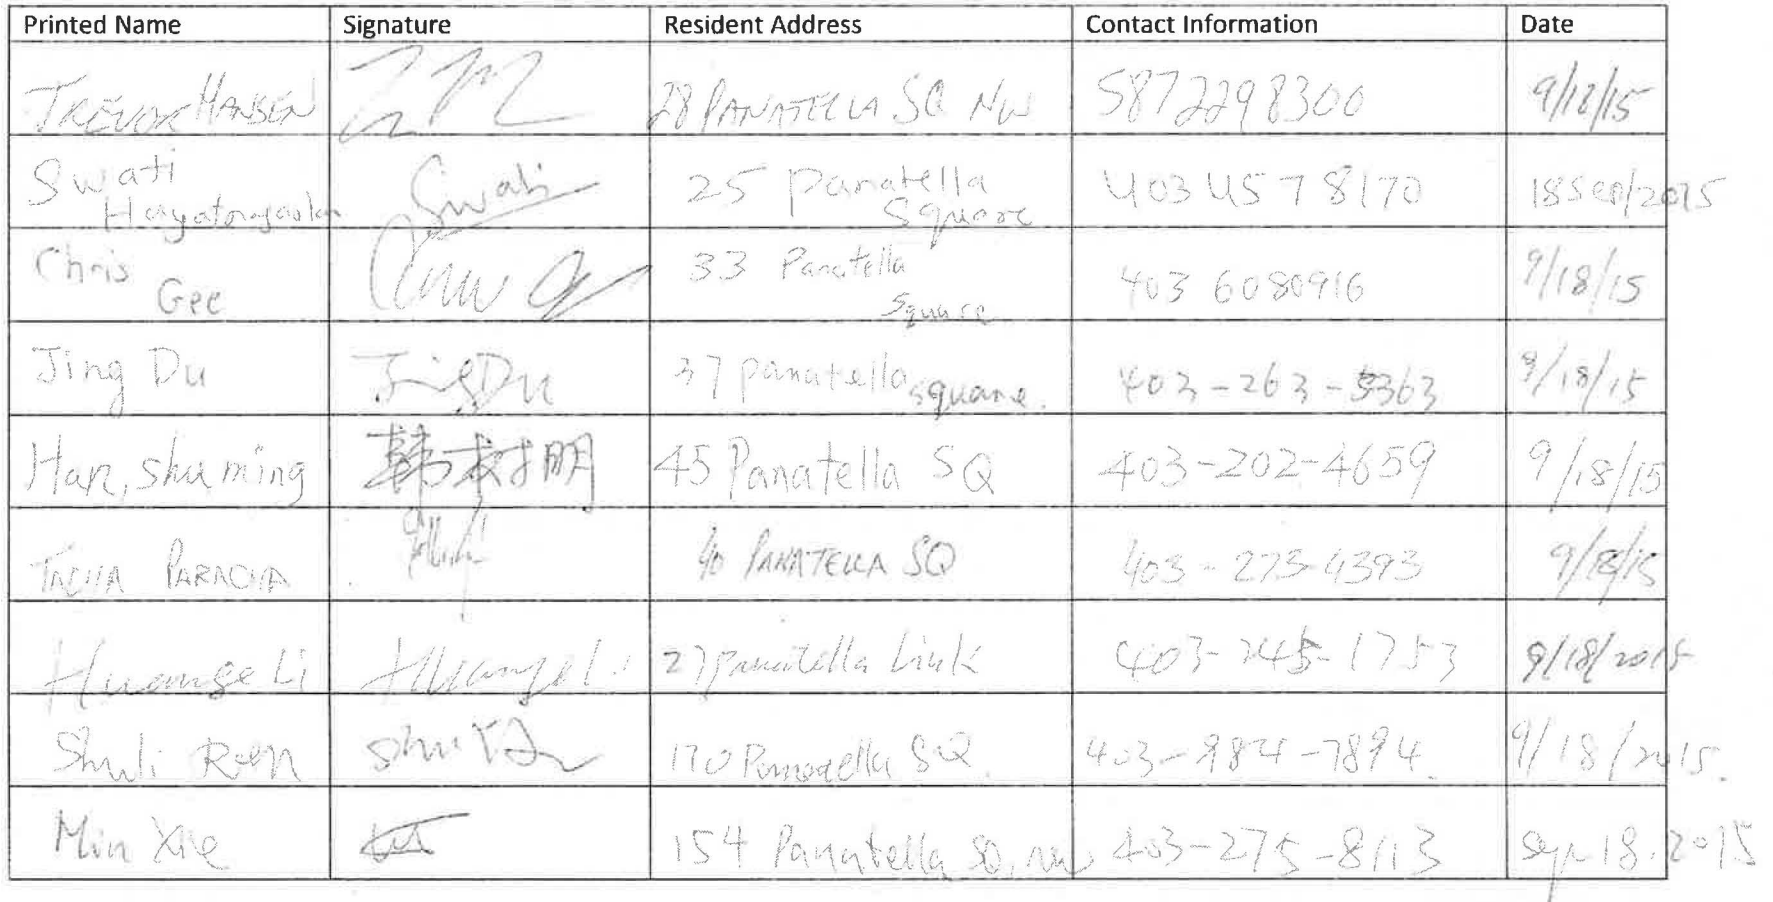 Printed Name Signature Resident Address Contact Information Date
TREVOR HANSEN 28 PANATELLA SQ NW 5872298300 9/18/15
Swati Swati 25 Panatella Square 403 457 8170 18 Sep/2015
Chris Gee 33 Panatella Square 403 6080916 9/18/15
Jing Du Jing Du 37 panatella square. 403-263-5363 9/18/15
Han, shu ming 韩树明 45 Panatella SQ 403-202-4659 9/18/15
40 PANATELLA SQ 403-273-4393 9/18/15
Huange Li Huange Li 27 panatella Link 403-245-1753 9/18/2015
Shuli Ren 170 Panatella SQ. 403-984-7894. 9/18/2015.
Min Xie 154 Panatella SQ, NW 403-275-8113 Sep 18. 2015